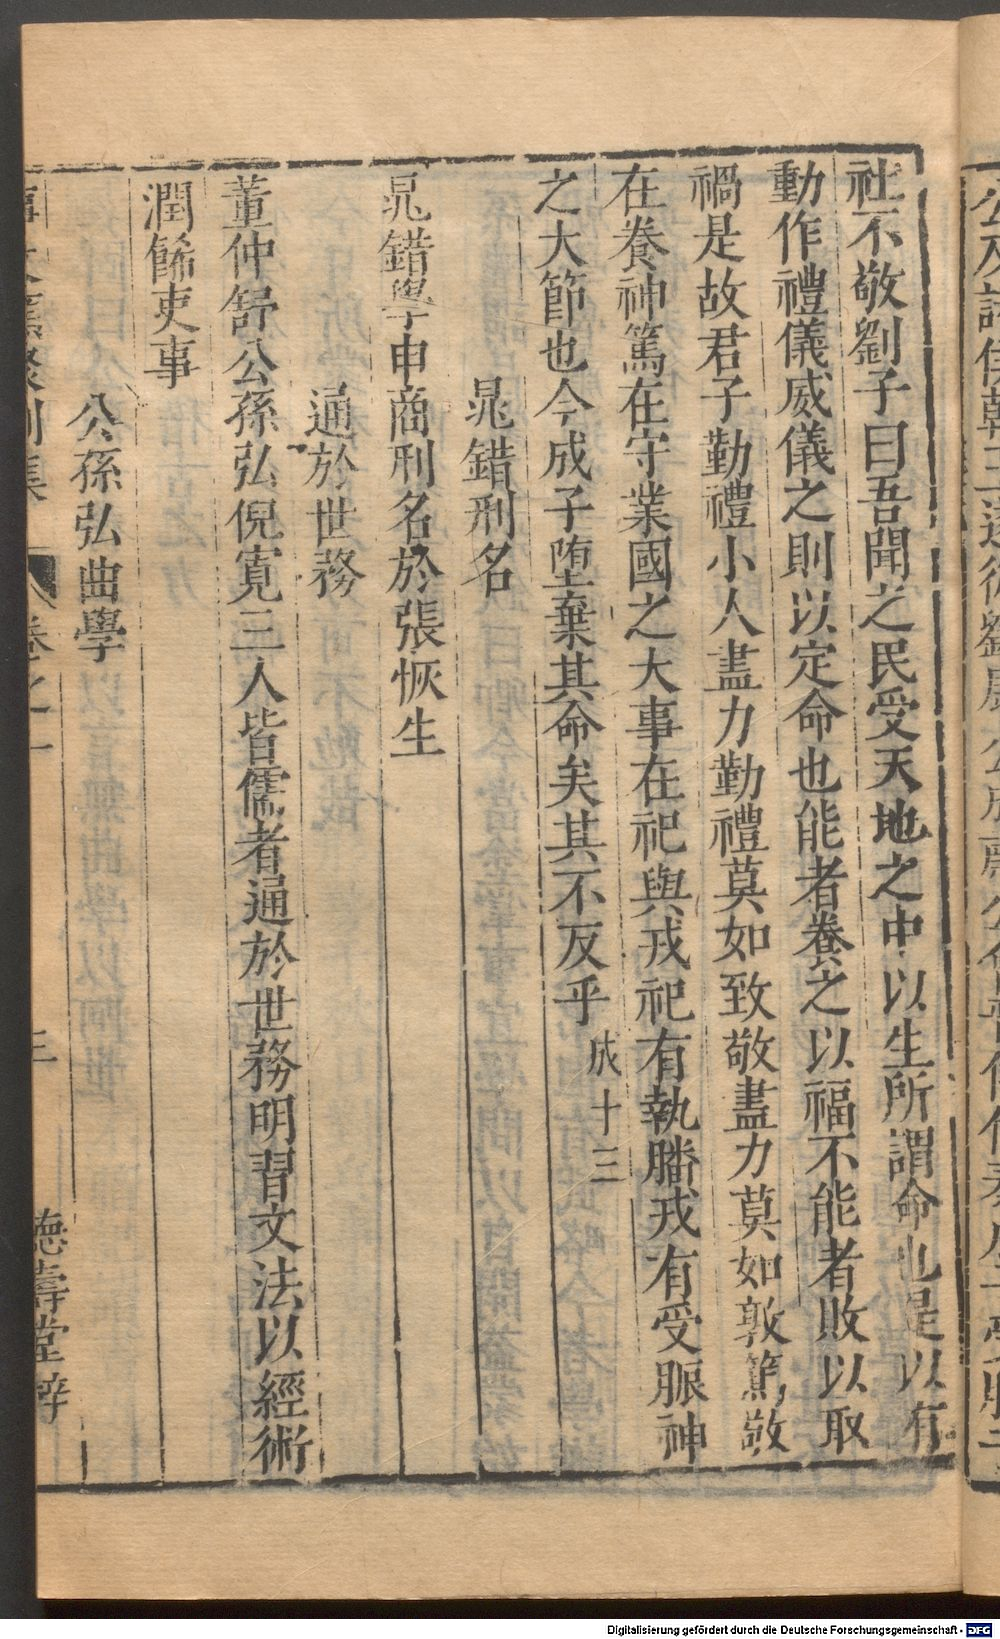 社不敬劉子曰吾聞之民受天地之中以生所謂命也是以有
動作禮儀威儀之則以定命也能者養之以福不能者敗以取
禍是故君子勤禮小人盡力勤禮莫如致敬盡力莫如敦篤敬
在養神篤在守業國之大事在祀與戎祀有執膰戎有受脤神
之大節也今成子墮棄其命矣其不反乎 成十三
晁錯刑名
晁錯學申商刑名於張恢生
通於世務
董仲舒公孫弘倪寬三人皆儒者通於世務明習文法以經術
潤餙吏事
公孫弘曲學
事文類聚別集 卷之一 三 德壽堂梓
Digitalisierung gefördert durch die Deutsche Forschungsgemeinschaft - DFG